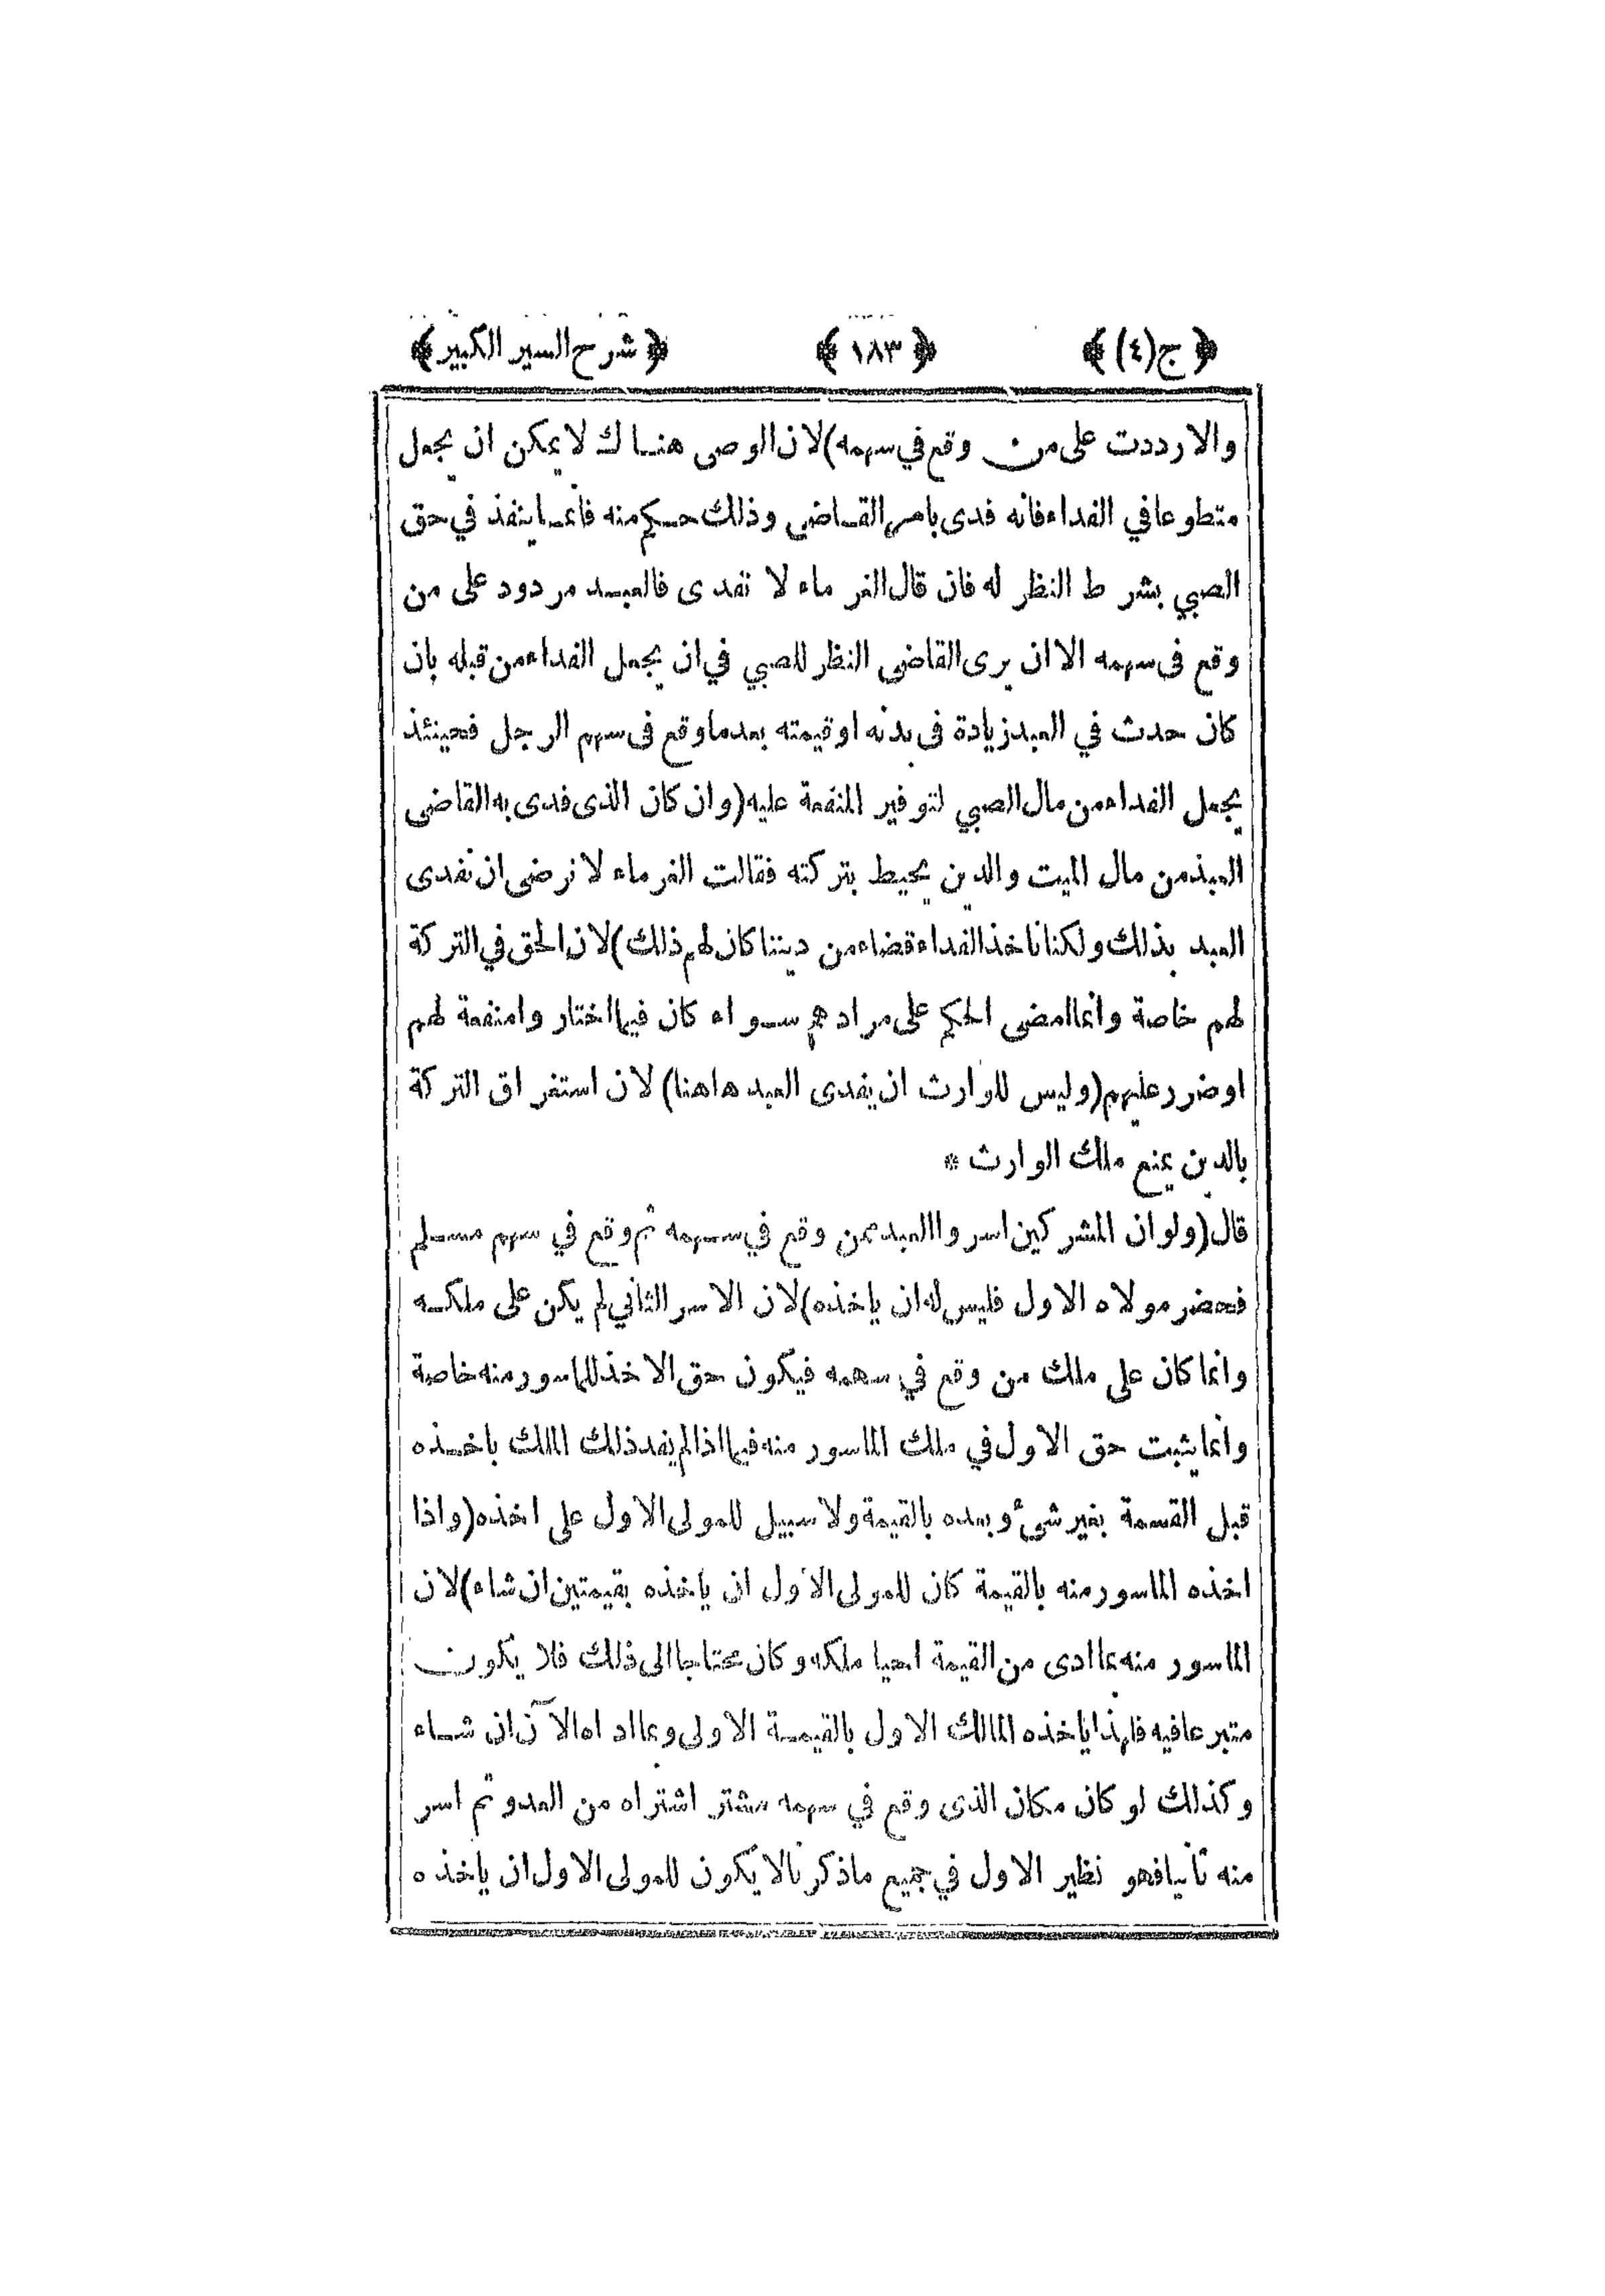 ﴿ ج(٤) ﴾ ﴿ ١٨٣ ﴾ ﴿ شرح السير الكبير ﴾
والا رددت على من وقع في سهمه) لان الوصى هناك لا يمكن ان يجعل
متطوعا في الفداء فانه فدى بامر القاضى وذلك حكم منه فانما ينفذ في حق
الصبي بشرط النظر له فان قال الغرماء لا نفدى فالعبد مردود على من
وقع فى سهمه الا ان يرى القاضى النظر للصبي في ان يجعل الفداء من قبله بان
كان حدث في العبد زيادة فى بدنه او قيمته بعد ما وقع فى سهم الرجل فحينئذ
يجعل الفداء من مال الصبي لتوفير المنفعة عليه (وان كان الذى فدى به القاضى
العبد من مال الميت والدين يحيط بتركته فقالت الغرماء لا نرضى ان نفدى
العبد بذلك ولكنا ناخذ الفداء قضاء من ديننا كان لهم ذلك) لان الحق في التركة
لهم خاصة وانما امضى الحكم على مرادهم سواء كان فيما اختاروا منفعة لهم
او ضرر عليهم (وليس للوارث ان يفدى العبد هاهنا) لان استغراق التركة
بالدين يمنع ملك الوارث *
قال (ولو ان المشركين اسروا العبد ممن وقع في سهمه ثم وقع في سهم مسلم
فحضر مولاه الاول فليس له ان ياخذه) لان الاسر الثاني لم يكن على ملكه
وانما كان على ملك من وقع في سهمه فيكون حق الاخذ للماسور منه خاصة
وانما يثبت حق الاول في ملك الماسور منه فيما اذا لم يفد ذلك الملك باخذه
قبل القسمة بغير شئ وبعده بالقيمة ولا سبيل للمولى الاول على اخذه (واذا
اخذه الماسور منه بالقيمة كان للمولى الاول ان ياخذه بقيمتين ان شاء) لان
الماسور منه بما ادى من القيمة احيا ملكه وكان محتاجا الى ذلك فلا يكون
متبرعا فيه فلهذا ياخذه المالك الاول بالقيمة الاولى وبما اداه الآن ان شاء
وكذلك لو كان مكان الذى وقع في سهمه مشتر اشتراه من العدو ثم اسر
منه ثانيا فهو نظير الاول في جميع ما ذكرنا لا يكون للمولى الاول ان ياخذه